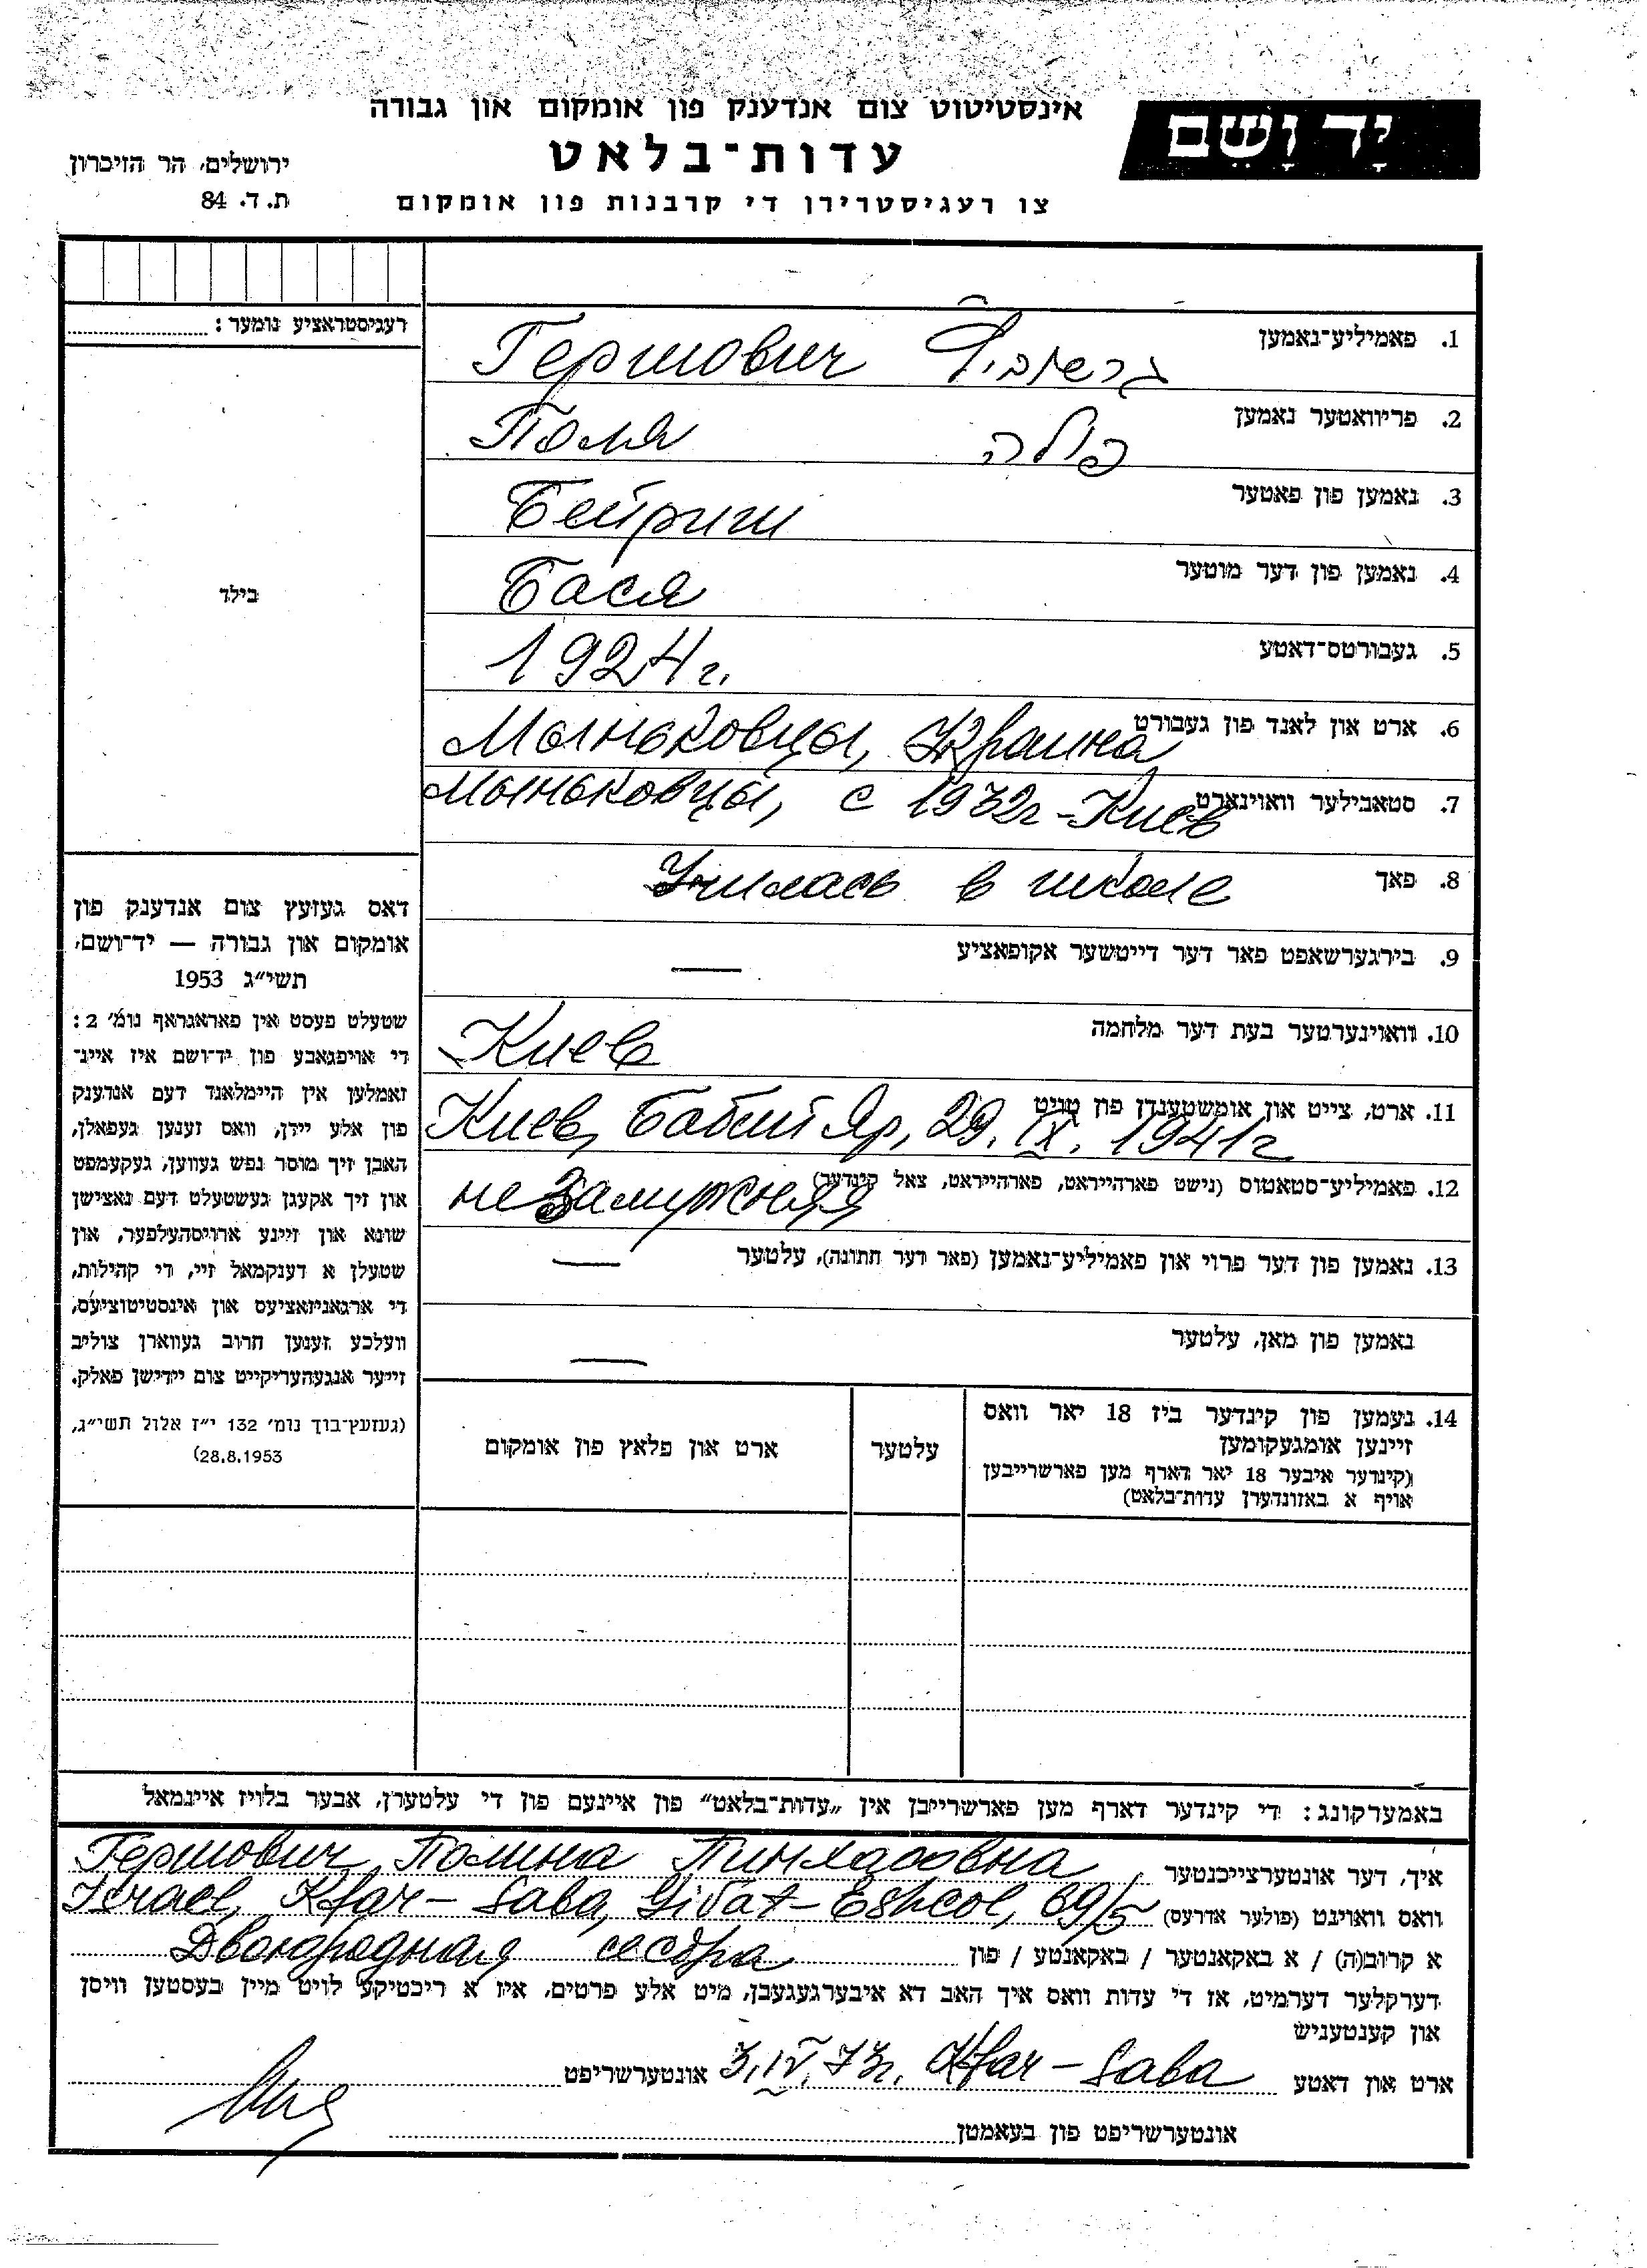 יָד וָשֵׁם
אינסטיטוט צום אנדענק פון אומקום און גבורה
עדות־בלאט
צו רעגיסטרירן די קרבנות פון אומקום
ירושלים, הר הזיכרון
ת. ד. 84
רעגיסטראציע נומער:
בילד
1. פאמיליע־נאמען גרשוביץ' Гершович
2. פריוואטער נאמען פולה Поля
3. נאמען פון פאטער Бейриш
4. נאמען פון דער מוטער Бася
5. געבורטס־דאטע 1924 г.
6. ארט און לאנד פון געבורט Мыньковцы, Украина
7. סטאבילער וואוינארט Мыньковцы, с 1932г - Киев
8. פאך Училась в школе
9. בירגערשאפט פאר דער דייטשער אקופאציע —
10. וואוינערטער בעת דער מלחמה Киев
11. ארט, צייט און אומשטענדן פון טויט Киев, Бабий Яр, 29. IX. 1941г
12. פאמיליע־סטאטוס (נישט פארהייראט, פארהייראט, צאל קינדער) незамужняя
13. נאמען פון דער פרוי און פאמיליע־נאמען (פאר דער חתונה), עלטער —
נאמען פון מאן, עלטער —
דאס געזעץ צום אנדענק פון
אומקום און גבורה — יד־ושם,
תשי״ג 1953
שטעלט פעסט אין פאראגראף נומ׳ 2:
די אויפגאבע פון יד־ושם איז איינ־
זאמלען אין היימלאנד דעם אנדענק
פון אלע יידן, וואס זענען געפאלן,
האבן זיך מוסר נפש געווען, געקעמפט
און זיך אקעגן געשטעלט דעם נאצישן
שונא און זיינע ארויסהעלפער, און
שטעלן א דענקמאל זיי, די קהילות,
די ארגאניזאציעס און אינסטיטוציעס,
וועלכע זענען חרוב געווארן צוליב
זייער אנגעהעריקייט צום יידישן פאלק.
(געזעץ־בוך נומ׳ 132 י״ז אלול תשי״ג,
28.8.1953)
14. נעמען פון קינדער ביז 18 יאר וואס
זיינען אומגעקומען
(קינדער איבער 18 יאר דארף מען פארשרייבען
אויף א באזונדערן עדות־בלאט)
עלטער
ארט און פלאץ פון אומקום
באמערקונג: די קינדער דארף מען פארשרייבן אין „עדות־בלאט” פון איינעם פון די עלטערן, אבער בלויז איינמאל
איך, דער אונטערצייכנטער Гершович Полина Пинхасовна
וואס וואוינט (פולער אדרעס) Israel, Kfar-Saba, Givat-Eshcol, 69/5
א קרוב(ה) / א באקאנטער / באקאנטע / פון Двоюродная сестра
דערקלער דערמיט, אז די עדות וואס איך האב דא איבערגעגעבן, מיט אלע פרטים, איז א ריכטיקע לויט מיין בעסטען וויסן
און קענטעניש
ארט און דאטע Kfar-Saba 3.IV.73г. אונטערשריפט
אונטערשריפט פון בעאמטן